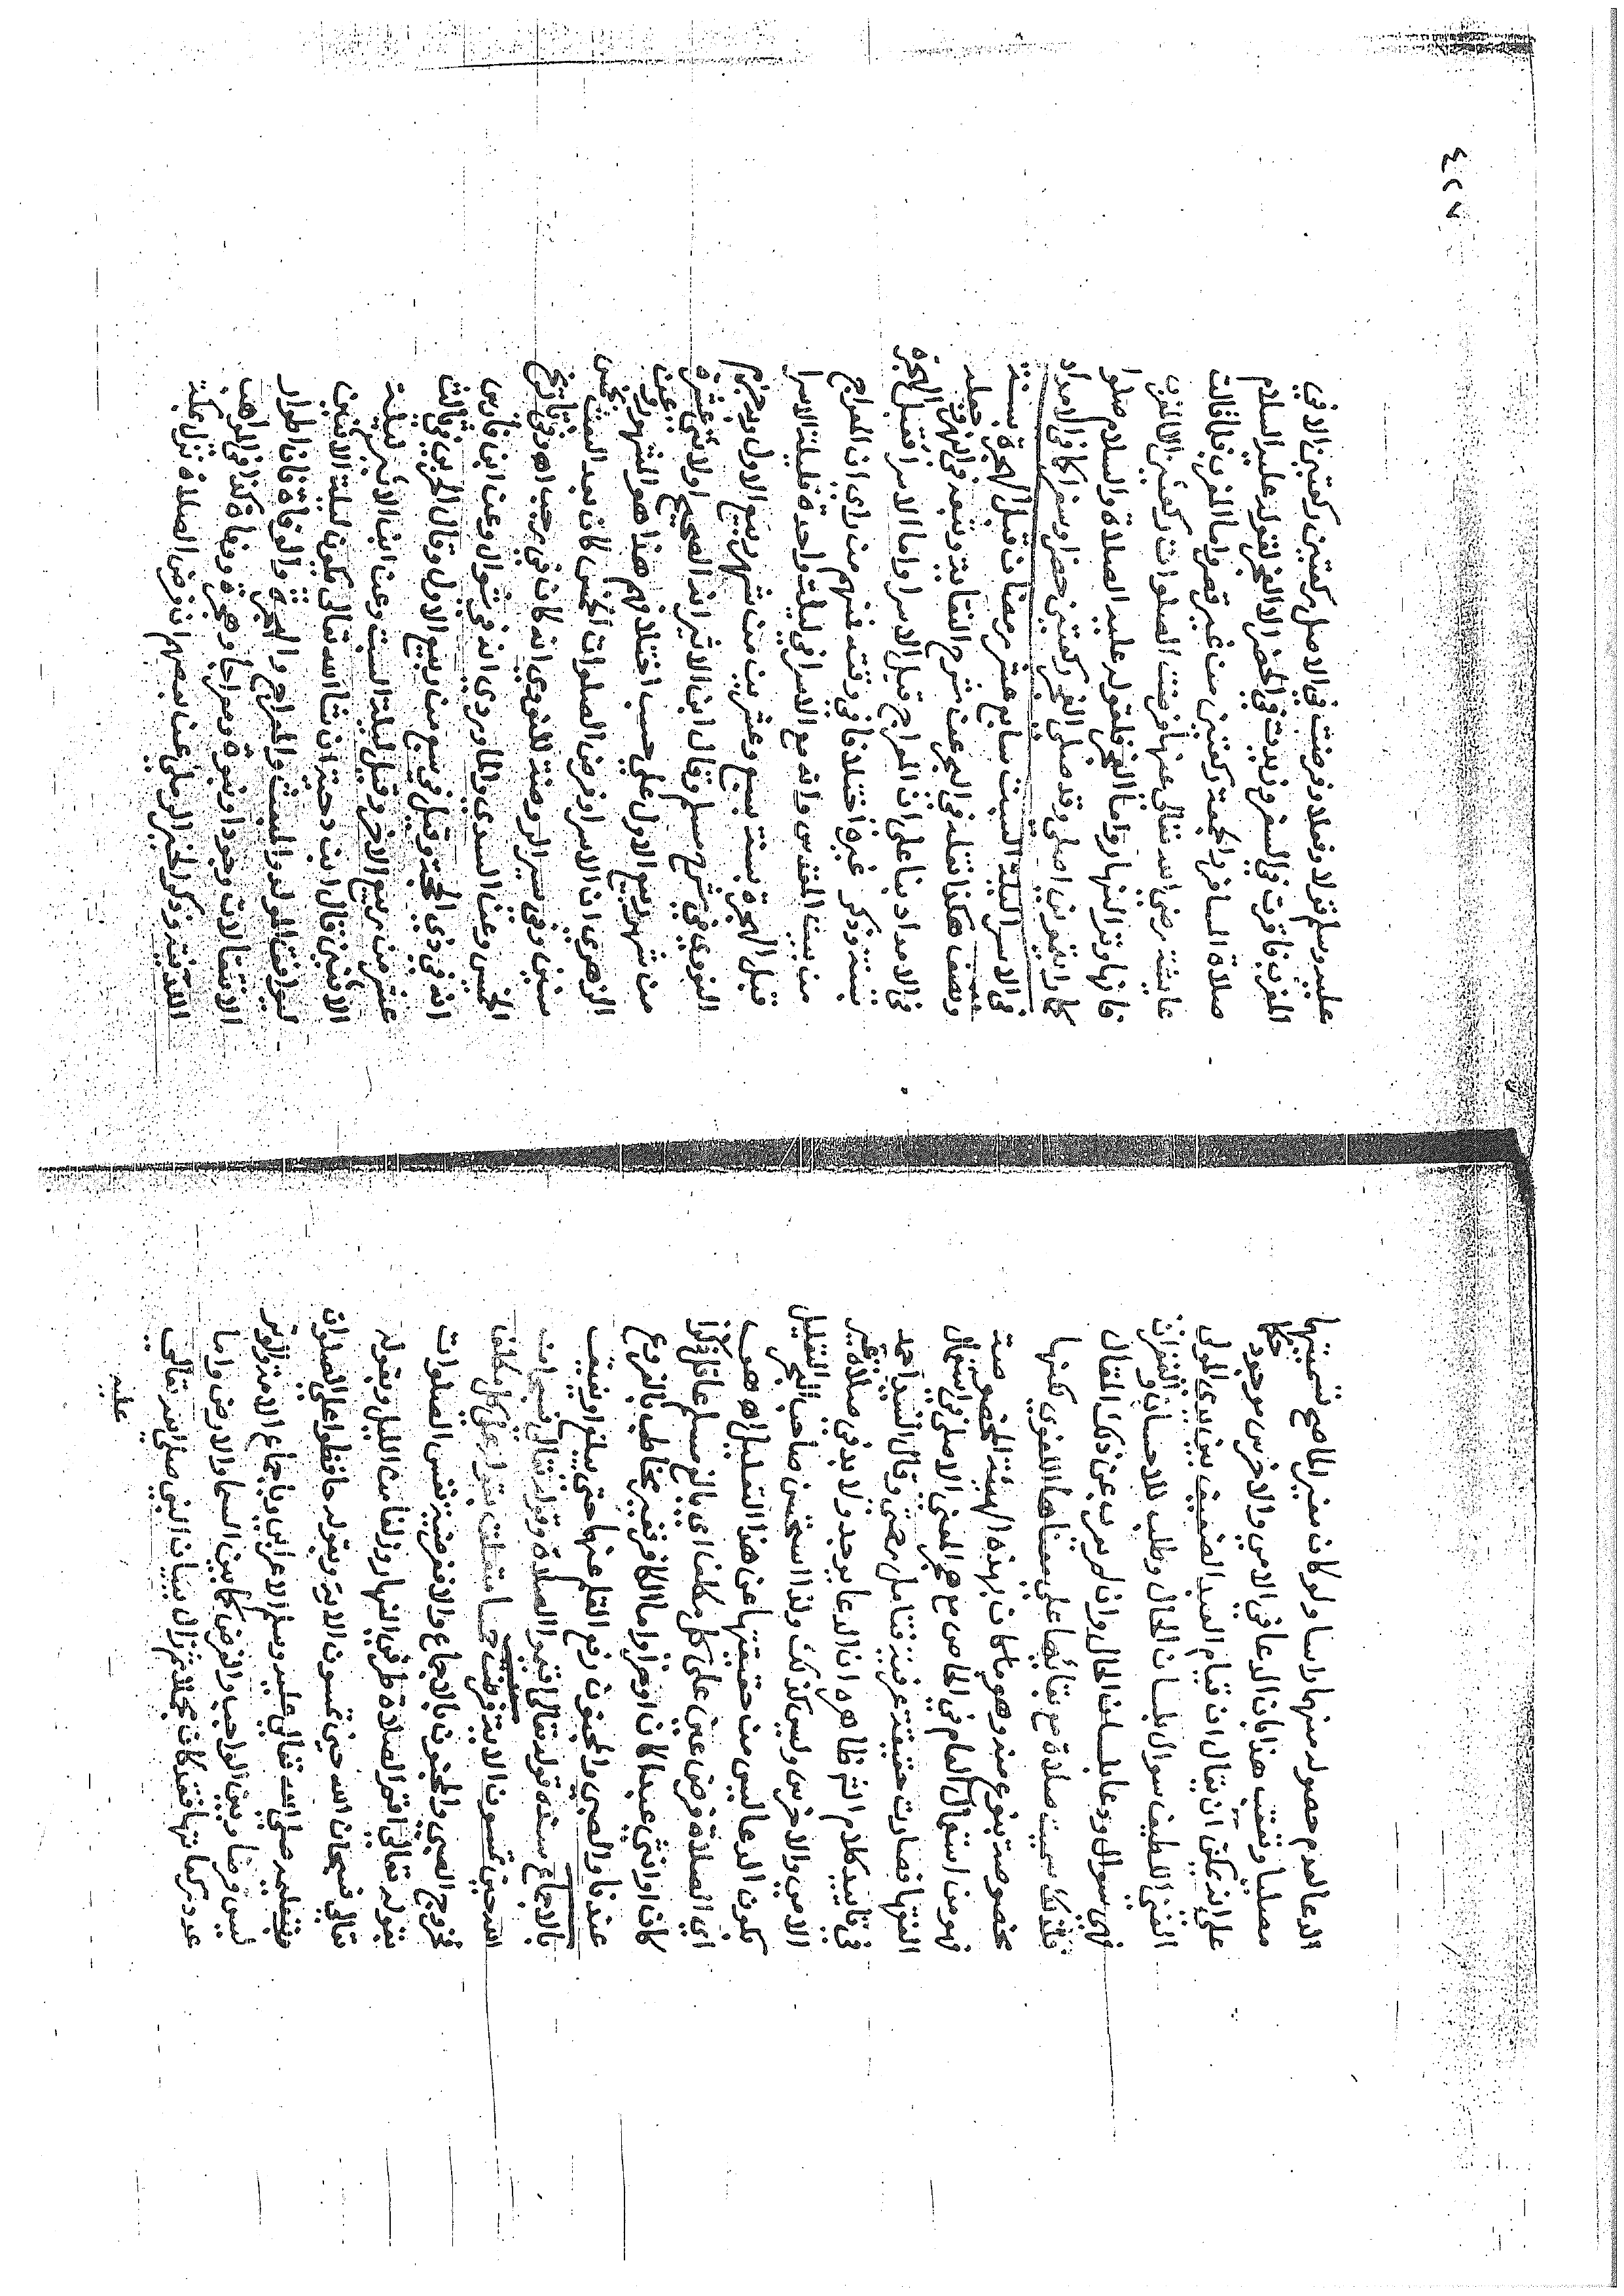 الدعا لعدم حصوله منها راسا ولو كان معتبرا لما صح تسميتها
مصليا وتعقب هذا بان الدعا في الامي والاخرس موجود حكما
على انه يمكن ان يقال ان قيام العبد الضعيف بين يدي المولى
الغني اللطيف سوال بلسان الحال وطلب للاحسان والغفران
فهي سوال ودعا بلسان الحال وان لم يعرب عن ذلك المقال
فلذلك سميت صلاة مع بقائها على معناها اللغوي لكنها
مخصوصة بنوع منه وهو ما كان بهذه الهيئة المخصوصة
فهو من استعمال العام في الخاص مع هجر المعنى الاصلي في استعمال
الفقها فصارت حقيقة عرفية فتامل رحمتي وقال السيد احمد
في تاييد كلام الش ظاهره ان الدعا يوجد ولا بد في صلاة غير
الامي والاخرس وليس كذلك ولذا استحسن صاحب البحر التعليل
بكون الدعا ليس من حقيقتها عن هذا التعليل اه هي
اي الصلاة فرض عين على كل مكلف اي بالغ مسلم عاقل ذكرا
كان او انثى عبدا كان او حرا واما الكافر فغير مخاطب بالفروع
عندنا والصبي والمجنون رفع القلم عنها حتى يبلغ او يفيق
بالاجماع سنده قوله تعالى اقيموا الصلاة وقوله تعالى فسبحان
الله حين تمسون الاية فرضت متعلق بقوله على كل مكلف
فخرج الصبي والمجنون بالاجماع والا ففرضية نفس الصلوات
بقوله تعالى اقم الصلاة طرفي النهار وزلفا من الليل وبقوله
تعالى فسبحان الله حين تمسون الاية وبقوله حافظوا على الصلوات
وبتعليمه صلى الله تعالى عليه وسلم الاعرابي وباجماع الامة والوتر
ليس فرضا وبين الواجب والفرض كما بين السما والارض واما
عدد ركعاتها فقد كان مجملا ثم زال ببيان النبي صلى الله تعالى
عليه
٤٢٧
عليه وسلم قولا وفعلا وفرضت في الاصل ركعتين ركعتين الا في
المغرب فاقرت في السفر وزيدت في الحضر الا الفجر لقوله عليه السلام
صلاة المسافر والجمعة ركعتين من غير قصر واما المغرب فلما قالت
عايشة رضي الله تعالى عنها فرضت الصلوات ركعتين الا المغرب
فانها وتر النهار واما الفجر فلقوله عليه الصلاة والسلام صلوا
كما رايتموني اصلي وقد صلى الفجر ركعتين حضرا وسفرا كما في الامداد
في الاسرا ليلة السبت سابع عشر رمضان قبل الهجرة بسنة
ونصف هكذا نقله في البحر عن شرح النقاية وتبعه في النهر وجعله
في الامداد بنا على ان المعراج قبل الاسرا واما الاسرا فقبل الهجرة
بسنة وذكر غيره اختلافا في وقته فمنهم من راى ان المعراج
من بيت المقدس وانه مع الاسرا في ليلة واحدة فليلة الاسرا
قبل الهجرة بسنة بسبع وعشرين من شهر ربيع الاول وبه جزم
النووي في شرح مسلم وقال ابن الاثير انه الصحيح او لاثني عشرة
من شهر ربيع الاول على حسب اختلافهم هذا هو المشهور وعن
الزهري ان الاسرا وفرض الصلوات الخمس كان بعد البعث بخمس
سنين وفي سير الروضة للنووي انه كان في رجب اه وفي تاريخ
الخميس وعن السدي والماوردي انه في شوال وعن ابن فارس
انه في ذي الحجة وقيل في سبع من ربيع الاول وقال الحربي في ثالث
عشر من ربيع الاخر وقيل ليلة السبت وعن ابن الاثير ليلة
الاثنين قال ابن دحية ان شا الله تعالى يكون ليلة الاثنين
ليوافق المولد والمبعث والمعراج والهجرة والوفاة فان اطوار
الانتقالات وجودا ونبوة ومعراجا وهجرة ووفاة كذا في المواهب
اللدنية وذكر الخير الرملي عن بعضهم ان فرض الصلاة نزل بمكة